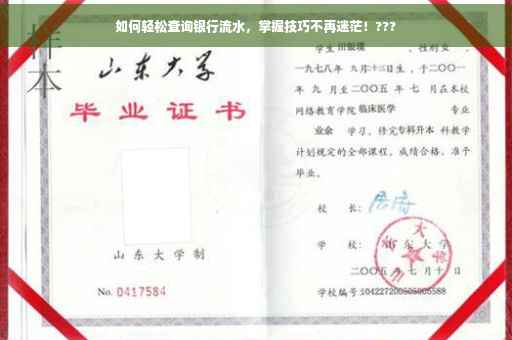 如何轻松查询银行流水，掌握技巧不再迷茫！???
样本
山东大学
毕业证书
山东大学制
No. 0417584
学生 田银瑞 ，性别 女 ，
一九七八年 九月十二日生，于二〇〇一
年 九 月至二〇〇五 年 七 月在本校
网络教育学院 临床医学 专业
业余 学习，修完 专科升本 科教学
计划规定的全部课程，成绩合格，准予
毕业。
校 长：
学 校： 山东大学
二〇〇五 年 七 月 十 日
学校编号:104227200505005588